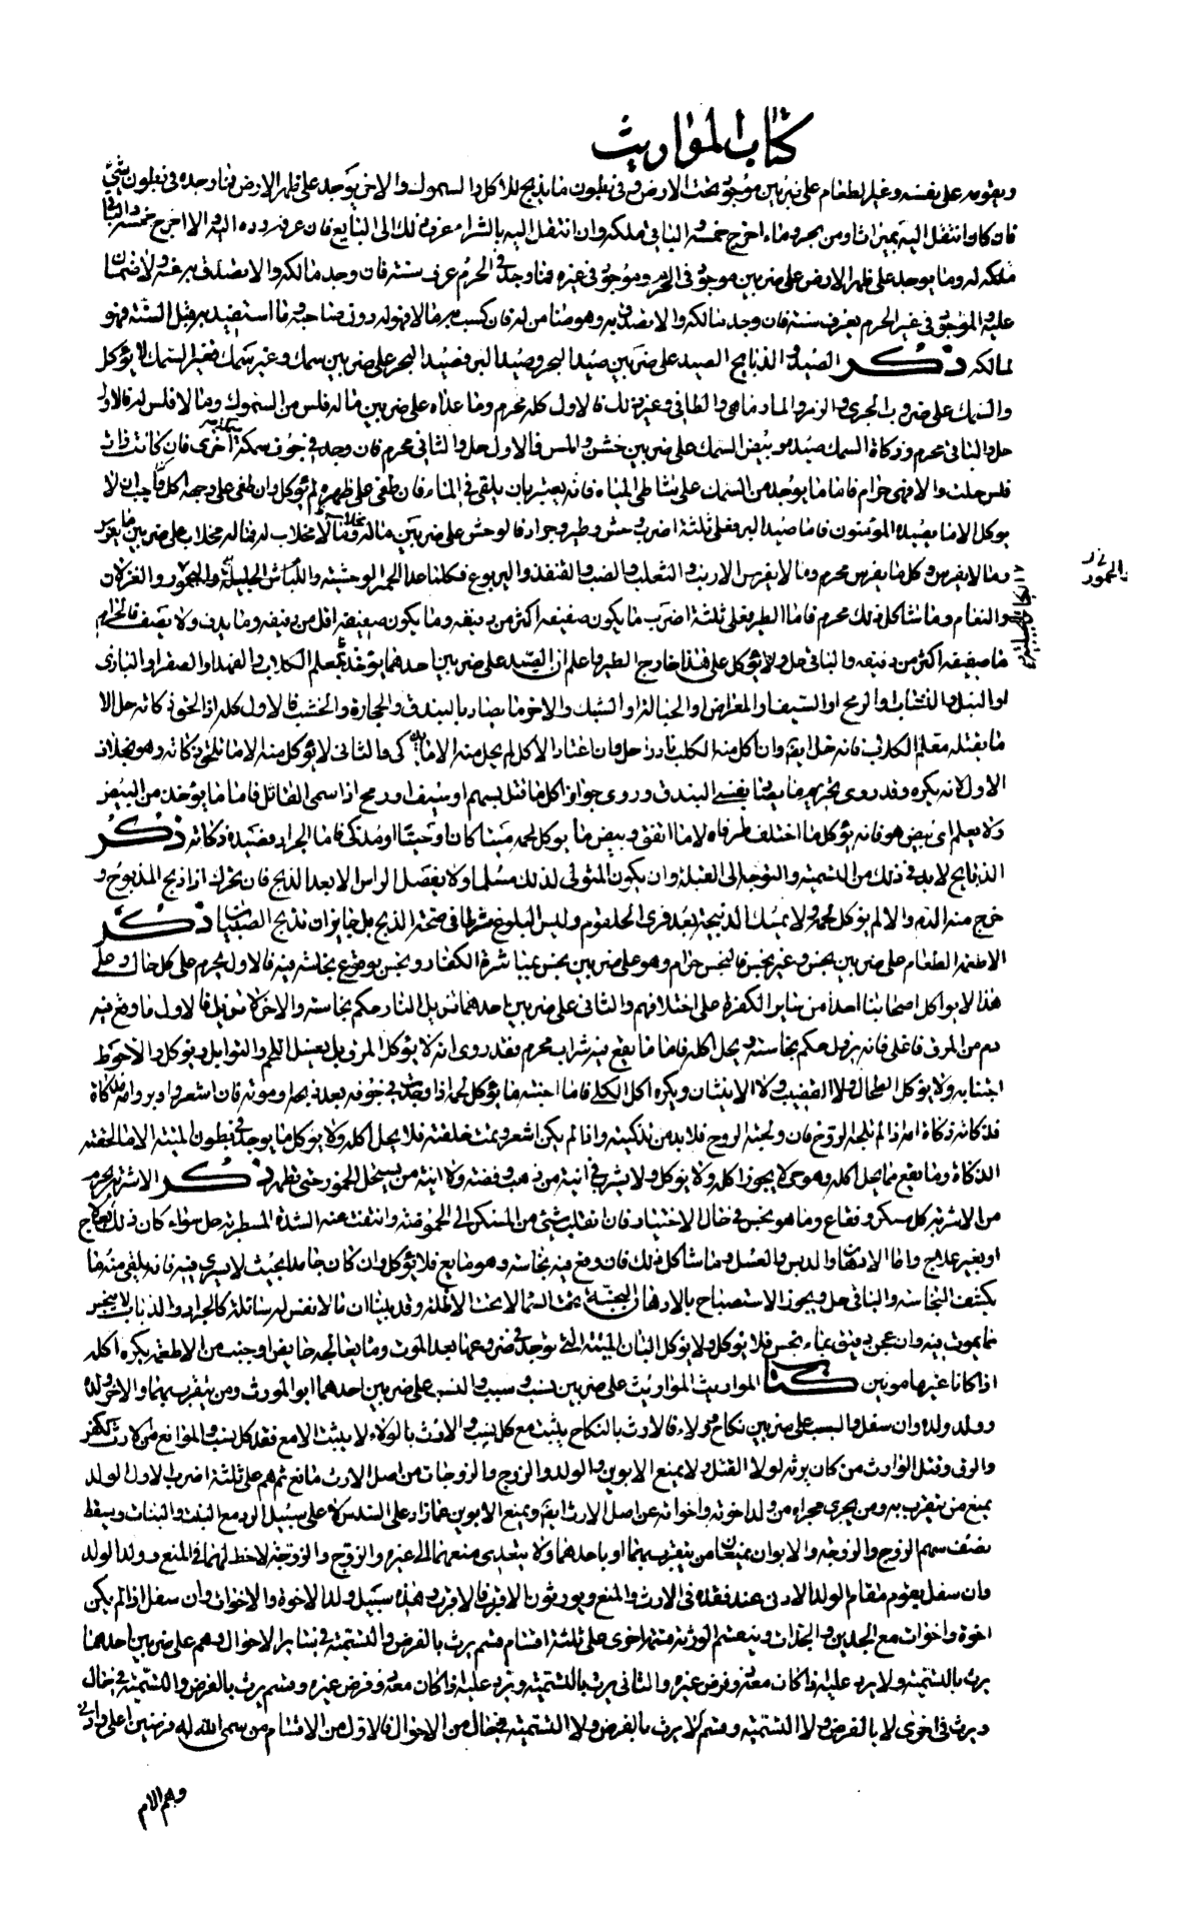 كتاب المواريث
ويقومه على نفسه وغير الطعام على ضربين موجود تحت الارض وفي بطون ما يذبح للاكل والسموك والاخر يوجد على ظهر الارض فما وجده في بطون شيء
فان كان انتقل اليه بميراث او من بحر وماء اخرج خمسه والباقي ملكه وان انتقل اليه بالشراء عرف ذلك الى البايع فان عرفه رده اليه والا اخرج خمسه والباقي
ملكه له وما يوجد على ظهر الارض على ضربين موجود في الحرم وموجود في غيره فما وجد في الحرم عرف سنة فان وجد مالكه والا تصدق به عنه ولا ضمان
عليه والموجود في غير الحرم يعرف سنة فان وجد مالكه والا تصدق به وهو ضامن له فان كسب به مالا فهو له دون صاحبه وما استفيد به قبل السنة فهو
لمالكه ذكر الصيد والذبايح الصيد على ضربين صيد البحر وصيد البر فصيد البحر على ضربين سمك وغير سمك فغير السمك لا يؤكل
والسمك على ضروب الجري والزمر والمارماهي والطافي وغير ذلك فالاول كله محرم وما عداه على ضربين ما له فلس من السموك وما لا فلس له فالاول
حل والثاني محرم وذكاة السمك صيده وبيض السمك على ضربين خشن واملس فالاول حل والثاني محرم فان وجد في جوف سمكة اخرى فان كانت ذات
فلس حلت والا فهي حرام فاما ما يوجد من السمك على شاطئ المياه فانه يعتبر بان يلقى في الماء فان طفى على ظهره لم يؤكل وان طفى على وجهه اكل ويجب ان لا
يوكل الا ما يصيده المؤمنون فاما صيد البر فعلى ثلثة اضرب وحش وطير وجراد فالوحش على ضربين ما له مخلاب وما لا مخلاب له فما له مخلاب على ضربين ما يفرس
وما لا يفرس وكل ما يفرس محرم وما لا يفرس الارنب والثعلب والضب والقنفذ واليربوع فكلما عدا الحمر الوحشية والكباش الجبلية واليحمور والغزلان
والنعام وما شاكل ذلك محرم فاما الطير فعلى ثلثة اضرب ما يكون صفيفه اكثر من دفيفه وما يكون صفيفه اقل من دفيفه وما يدف ولا يصف فالحرام
ما صفيفه اكثر من دفيفه والباقي حل ولا يؤكل على هذا جارح الطير واعلم ان الصيد على ضربين احدهما يؤخذ بمعلم الكلاب والفهد او الصقر او البازي
او النبل والنشاب والرمح او السيف او المعراض او الحبالة او الشبك والاخر ما يصاد بالبندق والحجارة والخشب فالاول كله اذا لحق ذكاته حل الا
ما يقتله معلم الكلاب فانه حل ايضا وان اكل منه الكلب نادرا حل وان اعتاد الاكل لم يحل منه الا ما يذكى والثاني لا يؤكل منه الا ما تلحق ذكاته وهو بخلاف
الاول لانه يكره وقد روي تحريم ما يصاد بقسي البندق وروي جواز اكل ما قتل بسهم او سيف او رمح اذا سمى القاتل فاما ما يؤخذ من البيض
ولا يعلم اي بيض هو فانه يؤكل ما اختلف طرفاه لا ما اتفق وبيض ما يوكل لحمه ميتا كان او حيا او مذكى فاما الجراد فصيده ذكاته ذكر
الذبايح لا بد في ذلك من التسمية والتوجه الى القبلة وان يكون المتولى لذلك مسلما ولا يفصل الراس الا بعد الذبح فان تحرك اذا ذبح المذبوح و
خرج منه الدم والا لم يؤكل لحمه ولا يمسك الذبيحة بعد فري الحلقوم وليس البلوغ شرطا في صحة الذبح بل جايز ان تذبح الصبيان ذكر
الاطعمة الطعام على ضربين نجس وغير نجس فالنجس حرام وهو على ضربين نجس بمباشرة الكفار ونجس بوقوع نجاسة فيه فالاول يحرم على كل حال وعلى
هذا لا يواكل اصحابنا احدا من ساير الكفرة على اختلافهم والثاني على ضربين احدهما تزيل النار حكم نجاسته والاخر لا تزيل فالاول ما وقع فيه
دم من المرق فاغلي فانه يزول حكم نجاسته ويحل اكله فاما ما يقع فيه شراب محرم فقد روي انه لا يؤكل المرق بل يغسل اللحم والتوابل ويؤكل والاحوط
اجتنابه ولا يؤكل الطحال ولا القضيب ولا الانثيان ويكره اكل الكلى فاما اجنة ما يؤكل لحمه اذا وجدت في جوفه بعد ذبحه او موته فان اشعر او اوبر وامه مذكاة
فذكاته ذكاة امه اذا لم تلجه الروح فان ولجته الروح فلا بد من تذكيته واذا لم يكن اشعر وتمت خلقته فلا يحل اكله ولا يؤكل ما يوجد في بطون الميتة الا ما لحقته
الذكاة وما يقع مما يحل اكله وهو حي لا يجوز اكله ولا يؤكل ولا يشرب في انية من ذهب وفضة ولا انية من يستحل الخمور حتى تطهر ذكر الاشربة يحرم
من الاشربة كل مسكر وفقاع وما هو نجس في حال الاختيار فان انقلب شيء من المسكر الى الحموضة وانتفت عنه الشدة المسطربة حل سواء كان ذلك بعلاج
او بغير علاج واما الادهان والدبس والعسل وما شاكل ذلك فان وقع فيه نجاسة وهو مايع فلا يؤكل وان كان جامدا بحيث لا يسري فيه فانه يلقى منه ما
يكتنف النجاسة والباقي حل ويجوز الاستصباح بالادهان النجسة تحت السماء لا تحت الاظلة وقد بينا ان ما لا نفس له سائلة كالجراد والذباب لا ينجس
بما يموت فيه وان عجن دقيق بماء نجس فلا يؤكل ولا يؤكل البان الميتة التي توجد في ضروعها بعد الموت وما يعالجه حايض او جنب من الاطعمة يكره اكله
اذا كانا غير مأمونين كتاب المواريث المواريث على ضربين نسب وسبب والنسب على ضربين احدهما ابو الموروث ومن يتقرب بهما والاخر ولده
وولد ولده وان سفل والسبب على ضربين نكاح وولاء فالارث بالنكاح يثبت مع كل نسب والارث بالولاء لا يثبت الا مع فقد كل نسب والموانع من الارث الكفر
والرق وقتل الوارث من كان يرثه لولا القتل ولا يمنع الابوين والولد والزوج والزوجات من اصل الارث مانع ثم هم على ثلثة اضرب الاول الولد
يمنع من يتقرب به ومن يجري مجراه من ولد اخوته واخواته عن اصل الارث ايضا ويمنع الابوين عما زاد على السدس الا على سبيل الرد مع البنت والبنات ويسقط
نصف سهم الزوج والزوجة والابوان يمنعان من يتقرب بهما او باحدهما ولا يتعدى منعهما الى غيره والزوج والزوجة لاحظ لهما في المنع وولد الولد
وان سفل يقوم مقام الولد الادنى عند فقده في الارث والمنع ويورثون الاقرب فالاقرب وهذه سبيل ولد الاخوة والاخوات وان سفل اذا لم يكن
اخوة واخوات مع الجدين والجدات وينقسم الورثة قسمة اخرى على ثلثة اقسام قسم يرث بالفرض والتسمية في ساير الاحوال وهم على ضربين احدهما
يرث بالتسمية ولا يرد عليه اذا كان معه ذو فرض غيره والثاني يرث بالتسمية ويرد عليه اذا كان معه ذو فرض غيره وقسم يرث بالفرض والتسمية في حال
ويرث في اخرى لا بالفرض ولا التسمية وقسم لا يرث بالفرض ولا التسمية في حال من الاحوال فالاول من الاقسام من سمى الله له فرضين اعلى وادنى
وهم الام